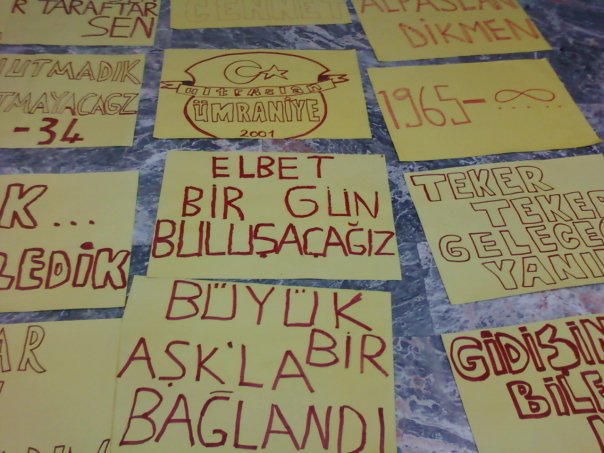 R TARAFTAR
SEN
CENNET
ALPASLAN
DİKMEN
UTMADIK
TMAYACAGZ
-34
ÜMRANİYE
2001
1965-∞
K...
LEDİK
ELBET
BİR GÜN
BULUŞAÇAĞIZ
TEKER
TEKER
GELECEĞ
YANI
AR
BÜYÜK
AŞK'LA BİR
BAĞLANDI
GİDİŞİN
BİLE